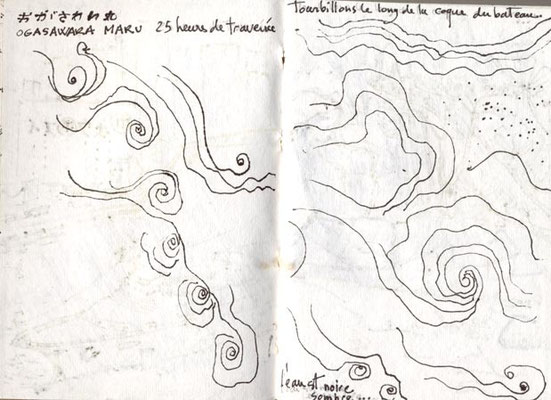 おがさわら丸
OGASAWARA MARU 25 heures de traversée
Tourbillons le long de la coque du bateau..
l'eau est noire
sombre...